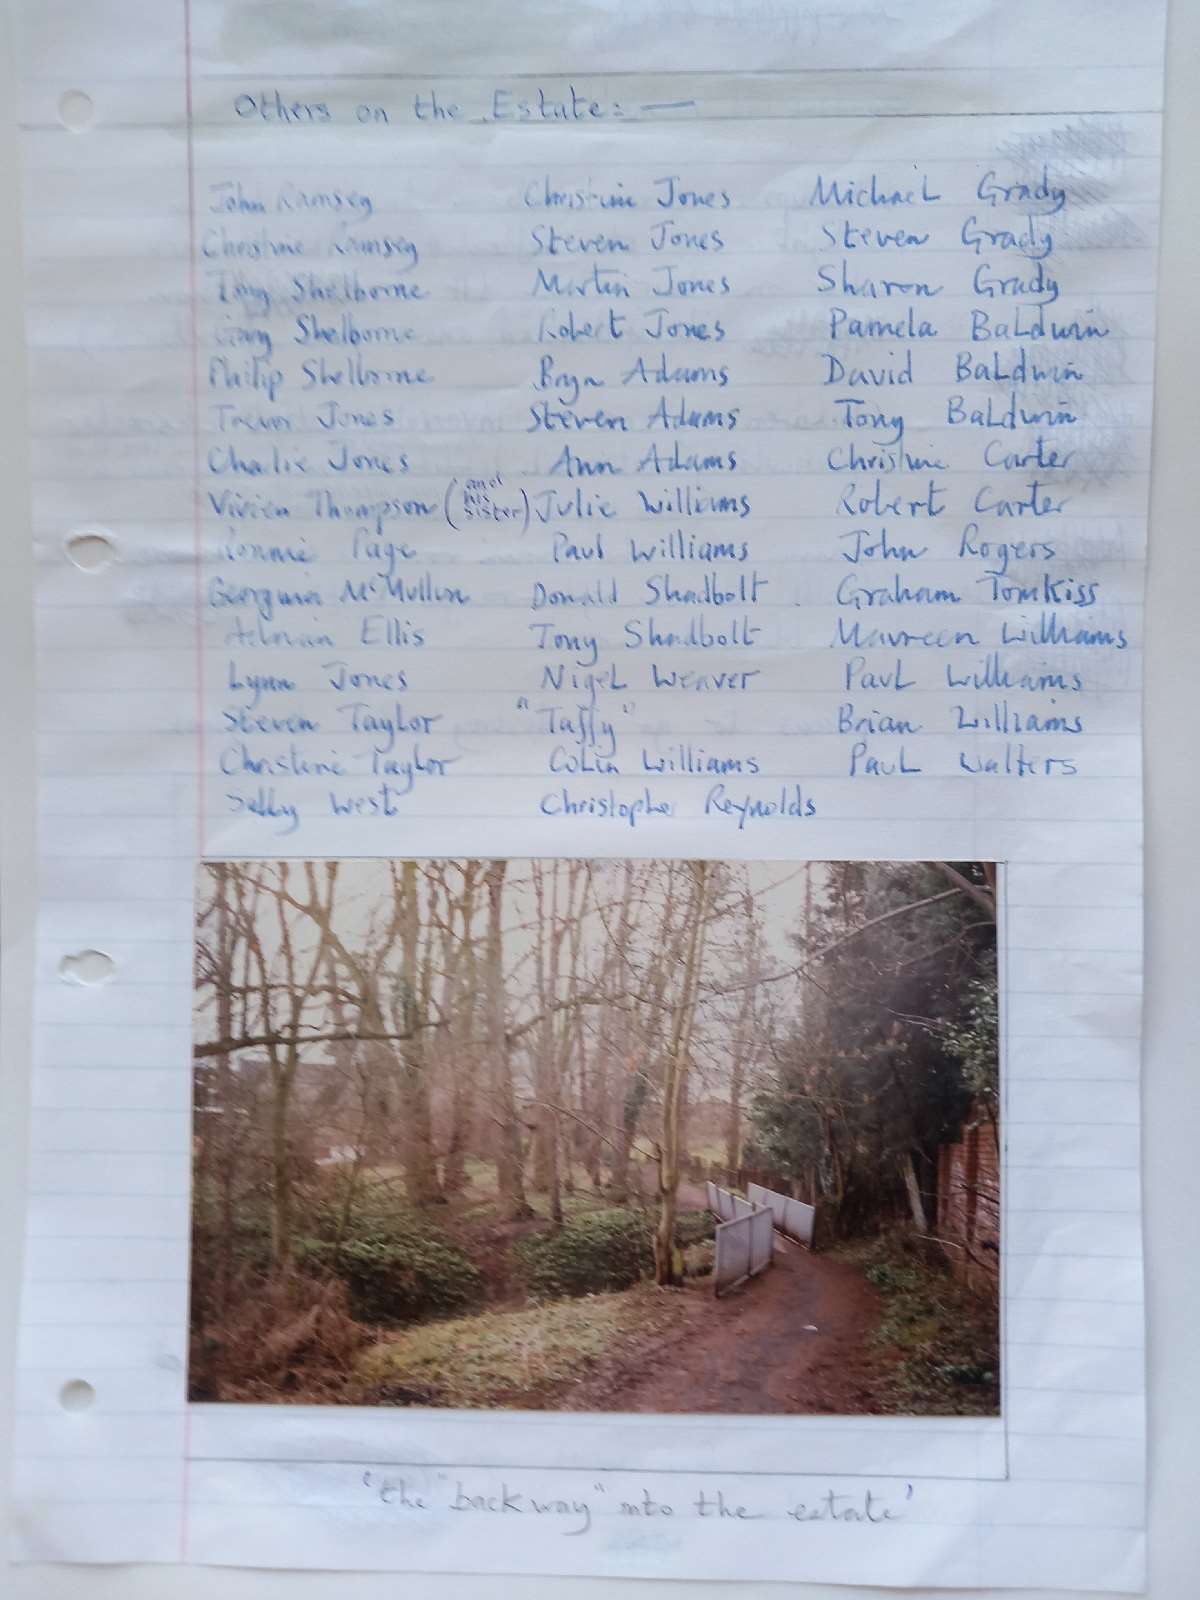 Others on the Estate: —
John Ramsey Christine Jones Michael Grady
Christine Ramsey Steven Jones Steven Grady
Tony Shelborne Martin Jones Sharon Grady
Gary Shelborne Robert Jones Pamela Baldwin
Philip Shelborne Bryn Adams David Baldwin
Trevor Jones Steven Adams Tony Baldwin
Charlie Jones Ann Adams Christine Carter
Vivien Thompson (and his sister) Julie Williams Robert Carter
Ronnie Page Paul Williams John Rogers
Georgina McMullen Donald Shadbolt Graham Tomkiss
Adrian Ellis Tony Shadbolt Maureen Williams
Lynn Jones Nigel Weaver Paul Williams
Steven Taylor "Taffy" Brian Williams
Christine Taylor Colin Williams Paul Walters
Sally West Christopher Reynolds
'the "back way" into the estate'